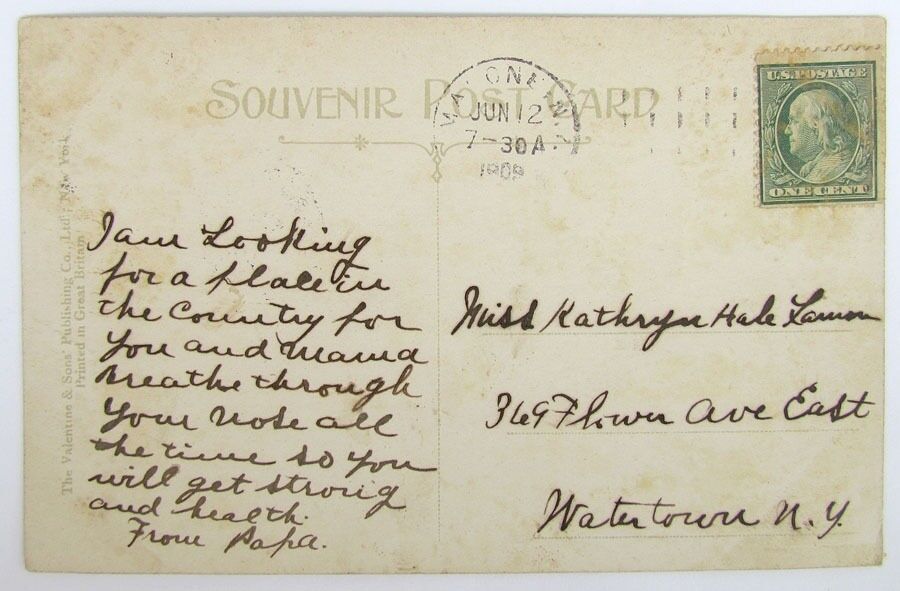 SOUVENIR POST CARD
JUN 12
7-30A.
1909
U.S. POSTAGE
ONE CENT
The Valentine & Sons' Publishing Co., Ltd., New York
Printed in Great Britain
I am Looking
for a place in
the country for
you and mama
breathe through
your nose all
the time so you
will get strong
and health.
From Papa.
Miss Kathryn Hale Lamon
369 Flower Ave East
Watertown N.Y.